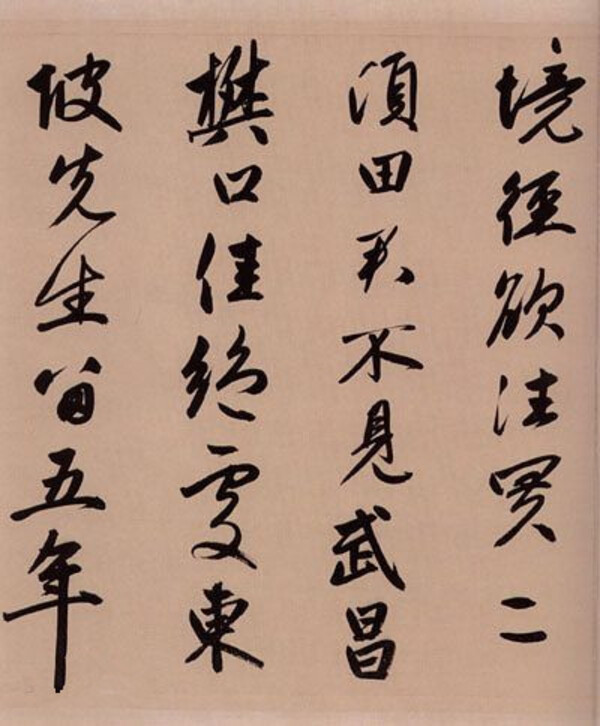 境徑欲往買二
頃田君不見武昌
樊口佳絶處東
坡先生留五年